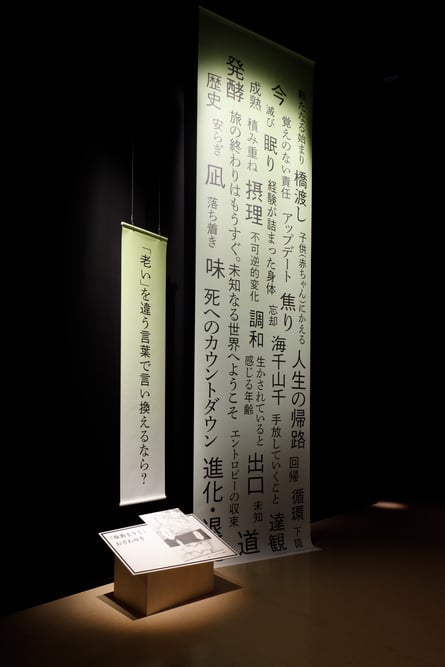 新たなる始まり 橋渡し 子供(赤ちゃん)にかえる 人生の帰路 回帰 循環
今 覚えのない責任 アップデート 焦り
滅び 眠り 経験が詰まった身体 忘却 海千山千 手放していくこと 達観
成熟 積み重ね 摂理 不可逆的変化 調和 生かされていると
感じる年齢 出口 未知
発酵 旅の終わりはもうすぐ。未知なる世界へようこそ エントロピーの収束 道
歴史 安らぎ 凪 落ち着き 味 死へのカウントダウン 進化・退
「老い」を違う言葉で言い換えるなら?
おざわゆき